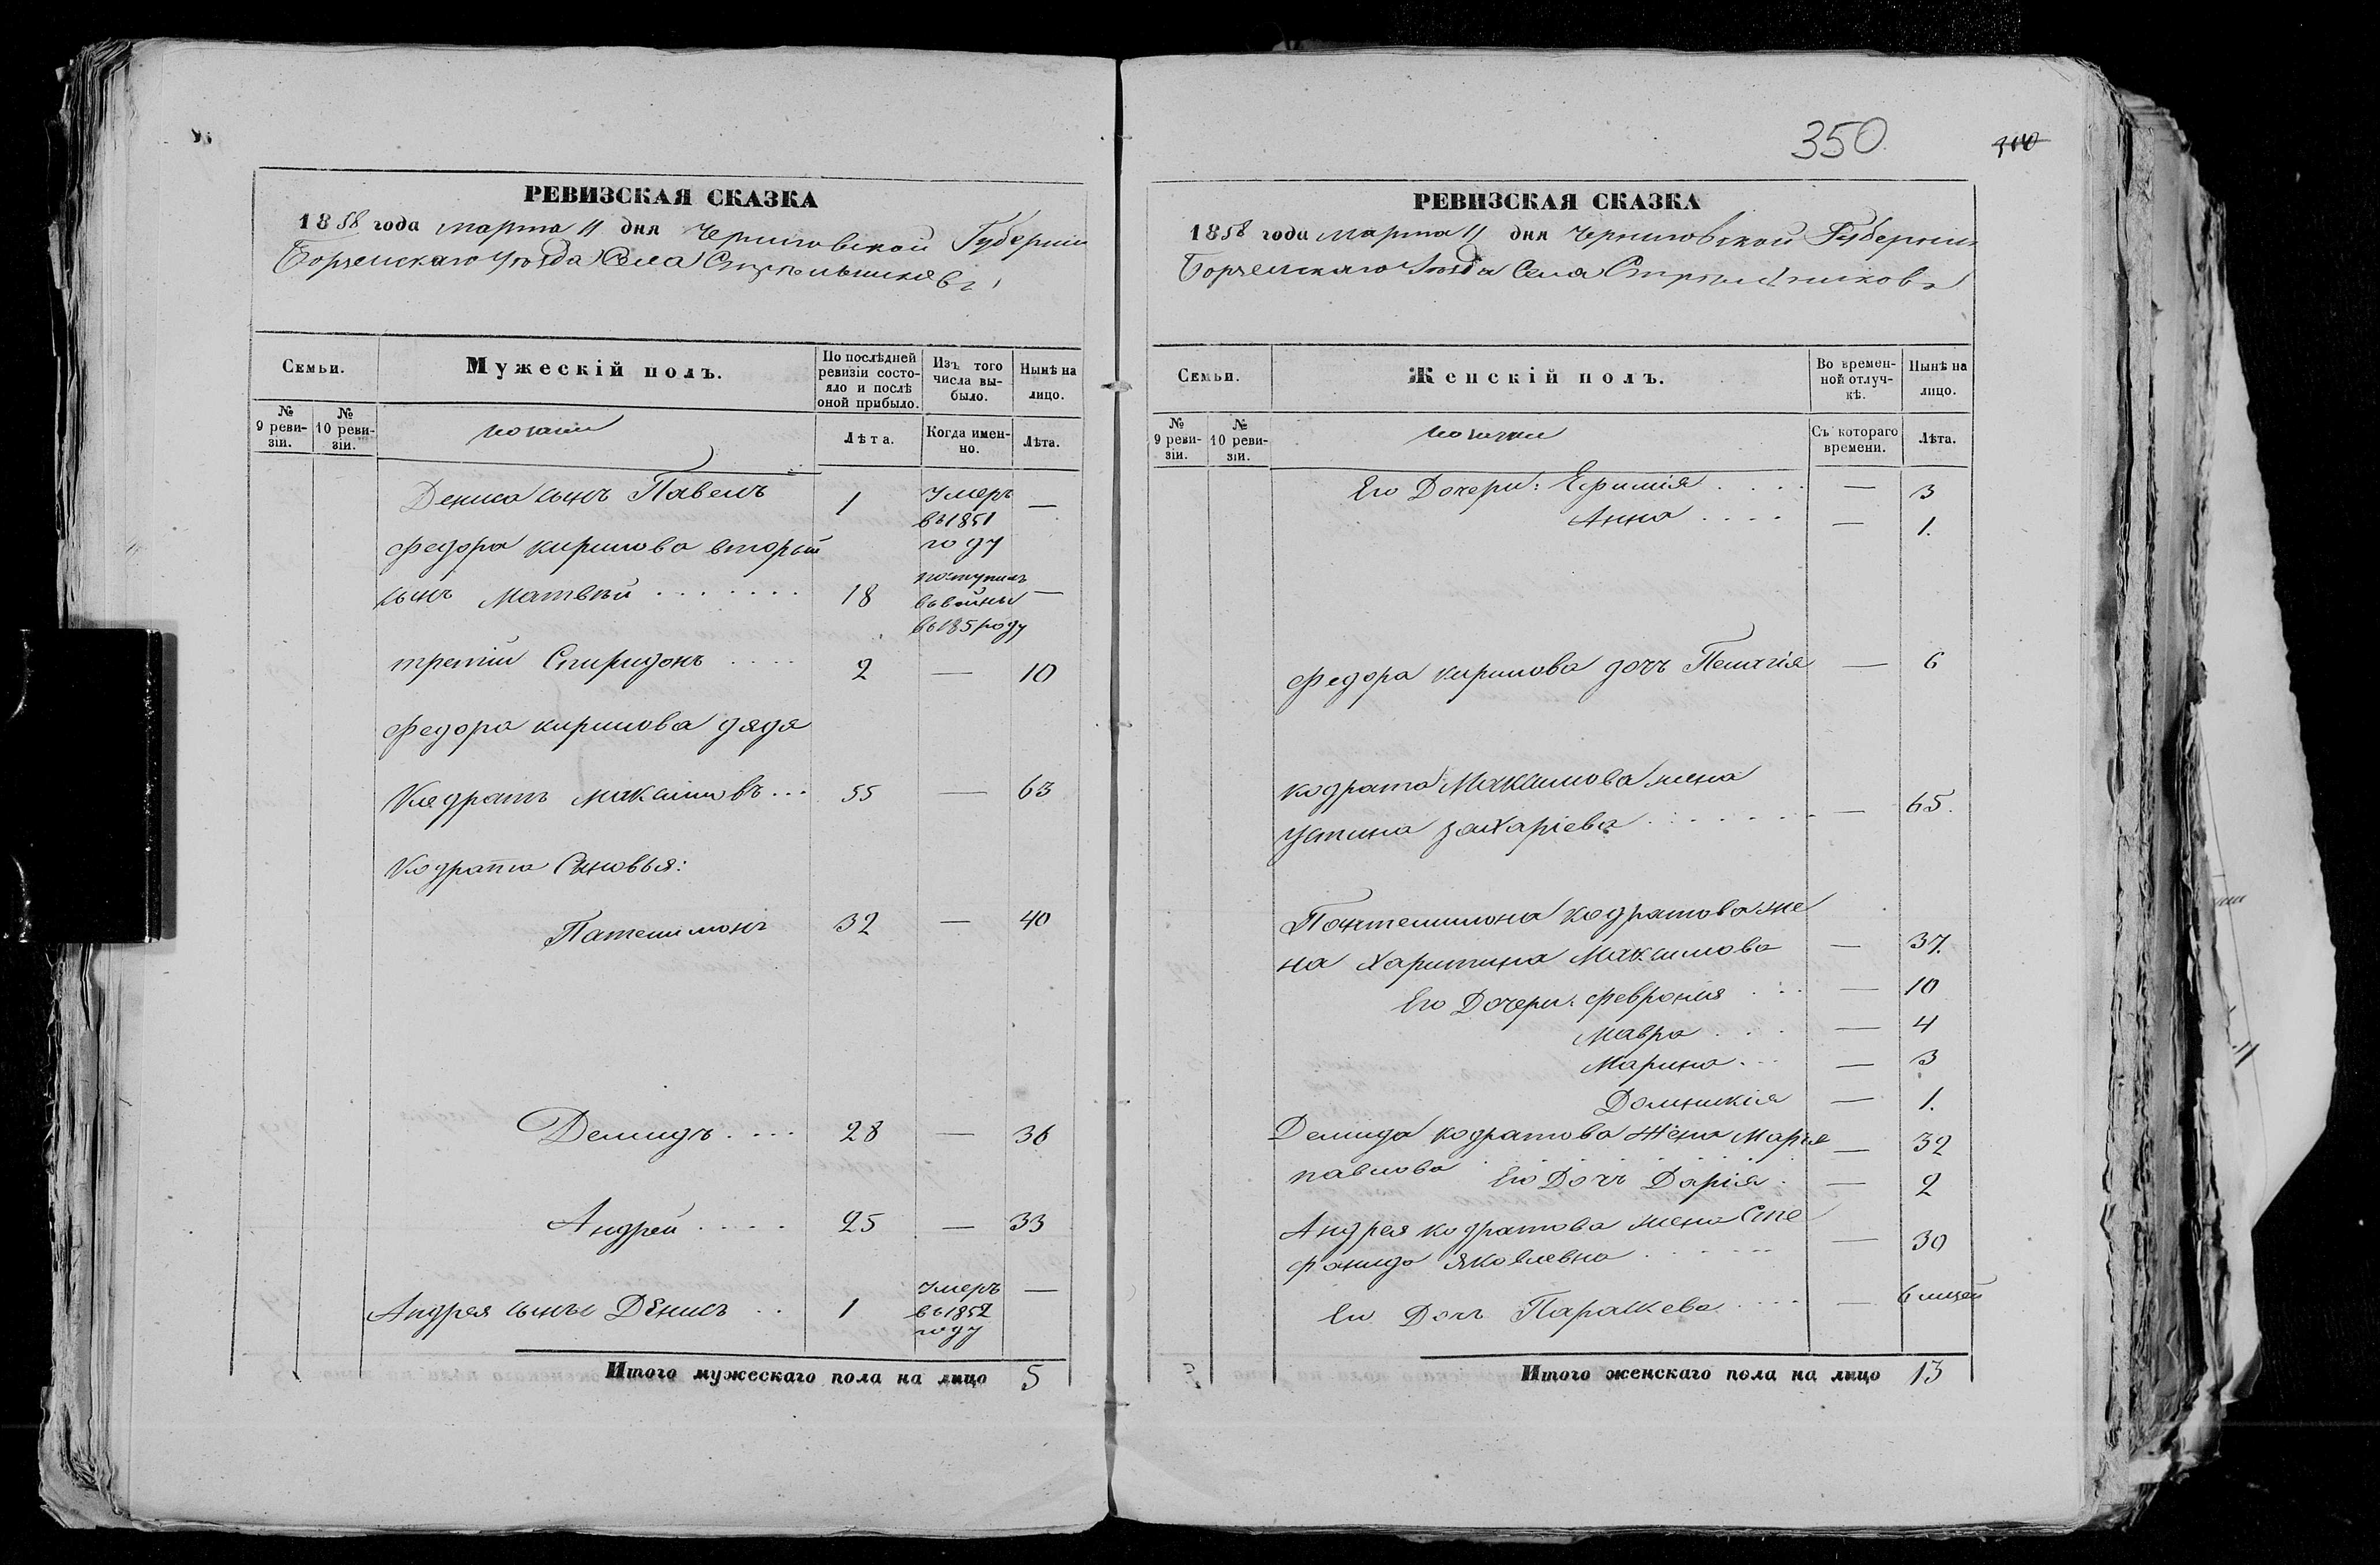 РЕВИЗСКАЯ СКАЗКА
1858 года марта 11 дня Черниговской Губерніи
Борзенскаго Уѣзда Села Стрѣльниковъ
Семьи.
Мужескій полъ.
По послѣдней ревизіи состояло и послѣ оной прибыло.
Изъ того числа выбыло.
Нынѣ на лицо.
№ 9 ревизіи.
№ 10 ревизіи.
козаки
Лѣта.
Когда именно.
Лѣта.
Дениса сынъ Павелъ 1 Умеръ —
въ 1851
году
Федора кирилова вторый
сынъ Матвѣй . . . . . . . 18 поступилъ —
въ 185 году
третій Спиридонъ . . . . 2 — 10
Федора кирилова дядя
Кодратъ максимовъ . . . 55 — 63
Кодрата Сыновья:
Пателимонъ 32 — 40
Демидъ . . . . 28 — 36
Андрей . . . . . 25 — 33
Андрея сынъ Денисъ . . 1 Умеръ —
въ 1852
году
Итого мужескаго пола на лицо 5
350
РЕВИЗСКАЯ СКАЗКА
1858 года марта 11 дня Черниговской Губерніи
Борзенскаго Уѣзда Села Стрѣльниковъ
Семьи.
Женскій полъ.
Во временной отлучкѣ.
Нынѣ на лицо.
№ 9 ревизіи.
№ 10 ревизіи.
козачки
Съ котораго времени.
Лѣта.
Его Дочери: Ефимія . . . . — 3
Анна . . . . — 1.
Федора кирилова дочь Пелагія — 6
кодрата Максимова жена
устина захаріева . . . . . . . — 65.
Пантелимона кодратова же
на Харитина Максимова — 37.
Его Дочери: Феврония . . . — 10
Мавра . . . . — 4
Марина . . . — 3
Домникія — 1.
Демида кодратова жена Марья — 32
павлова Его Дочь Дарія . — 2
Андрея кодратова жена Сте
фанида Яковлевна . . . . . . — 30
Его Дочь Параскева . . . . — 6 мцей
Итого женскаго пола на лицо 13